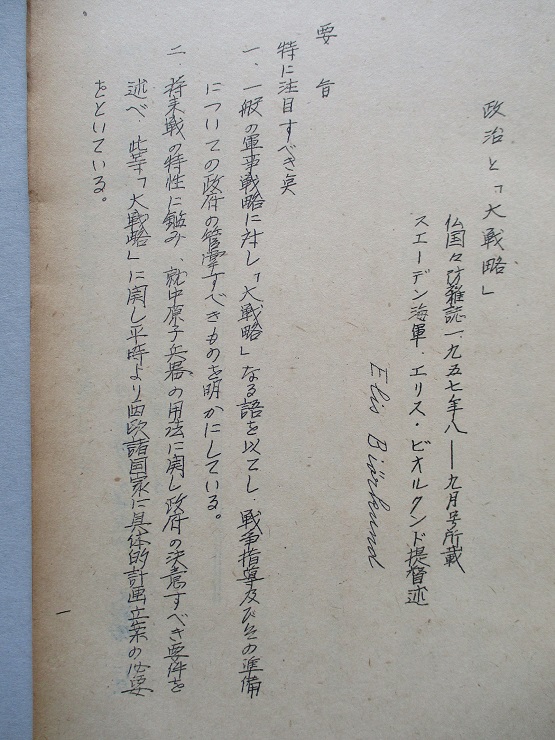 政治と「大戦略」
仏国々防雑誌一九五七年八——九月号所載
スエーデン海軍．エリス・ビオルクンド提督述
Elis Biörklund
要旨
特に注目すべき点
一、一般の軍事戦略に対し「大戦略」なる語を以てし．戦争指導及びその準備
についての政府の管掌すべきものを明かにしている。
二　将来戦の特性に鑑み、就中原子兵器の用法に関し政府の決意すべき要件を
述べ、此等「大戦略」に関し平時より西欧諸国家に具体的計画立案の必要
をといている。
一